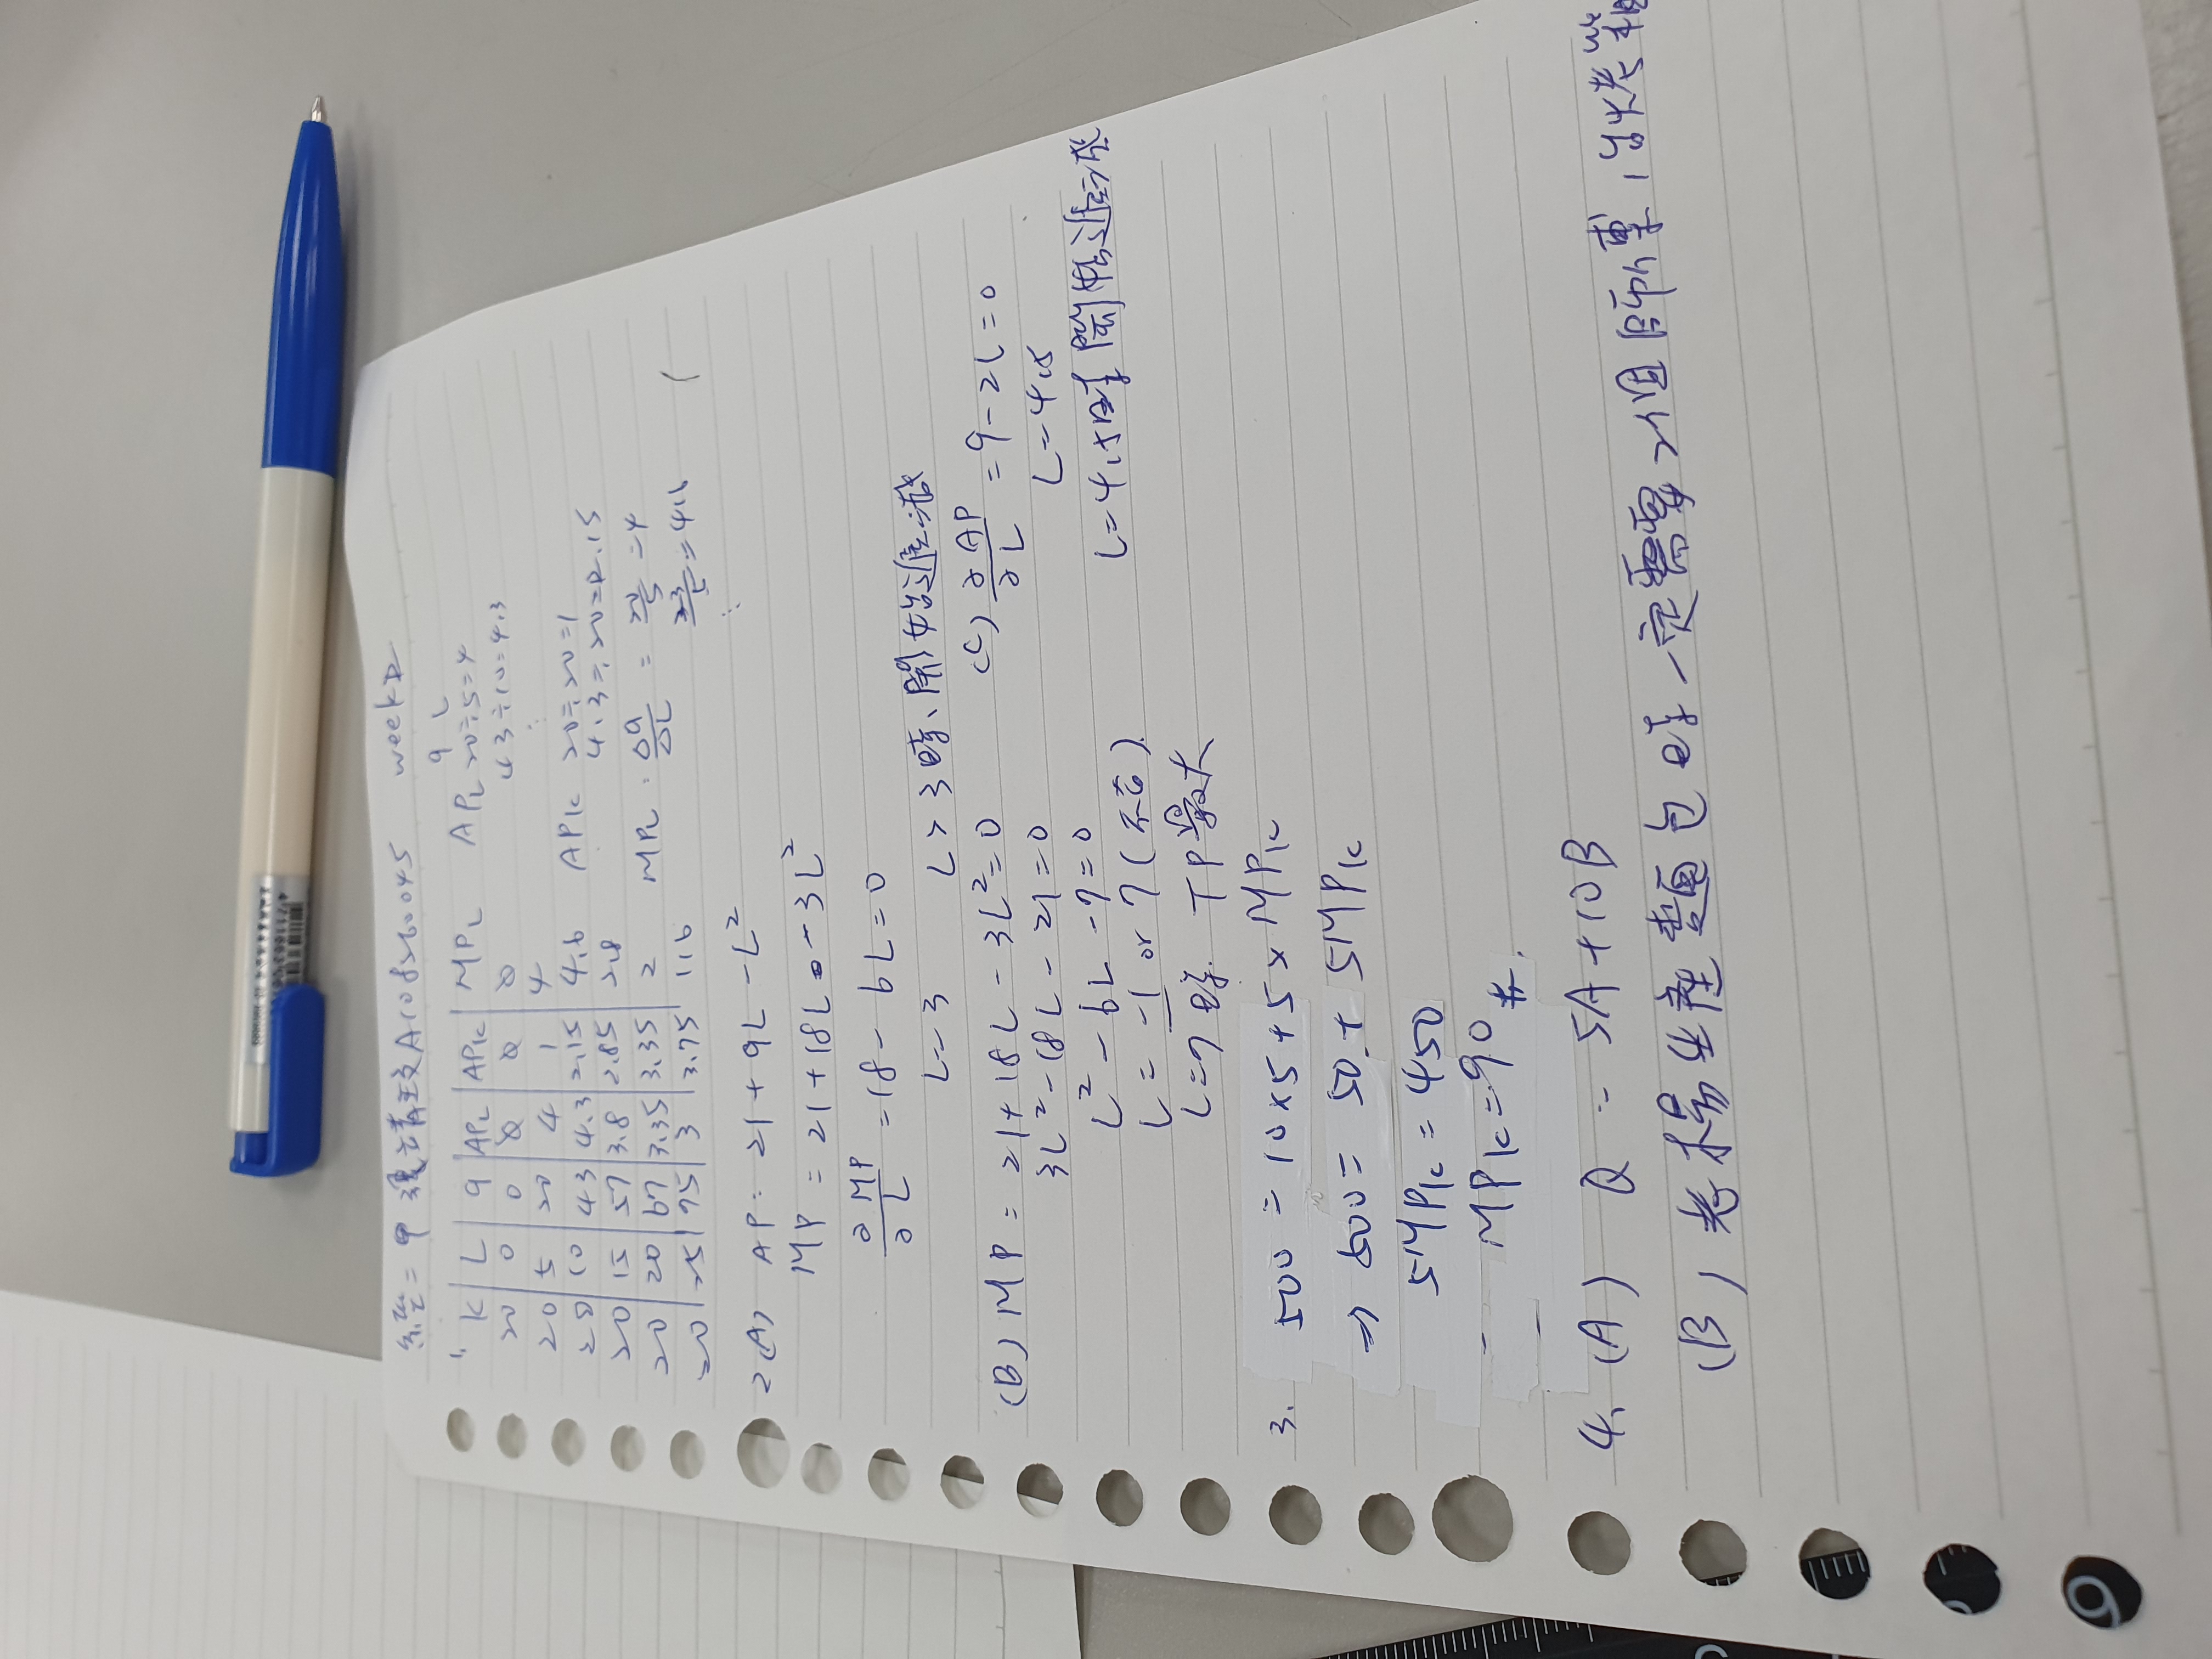 經二甲 A108260045 week2
1.
K L q APL APK MPL
20 0 0 0 0 0
20 5 20 4 1 4
20 10 43 4.3 2.15 4.6
20 15 57 3.8 2.85 2.8
20 20 67 3.35 3.35 2
20 25 75 3 3.75 1.6
q L
APL 20÷5=4
43÷10=4.3
⋮
APK 20÷20=1
4.3÷20=2.15
MPL : Δq/ΔL = 20/5 =4
23/5 =4.6
⋮
2(A) AP: 21+9L-L²
MP = 21+18L-3L²
∂MP/∂L =18-6L=0
L=3 L>3時、開始遞減
(B) MP = 21+18L-3L²=0
3L²-18L-21=0
L²-6L-7=0
L= -1 or 7 (不合).
L=7時. TP最大
(C) ∂AP/∂L =9-2L=0
L=4.5
L=4.5時開始遞減
3. 500 = 10×5+5×MPK
⇒ 500= 50+5MPK
5MPK=450
MPK=90#.
4. (A) Q = 5A+10B
(B) 老楊生產麵包時一定需要2個師傅,